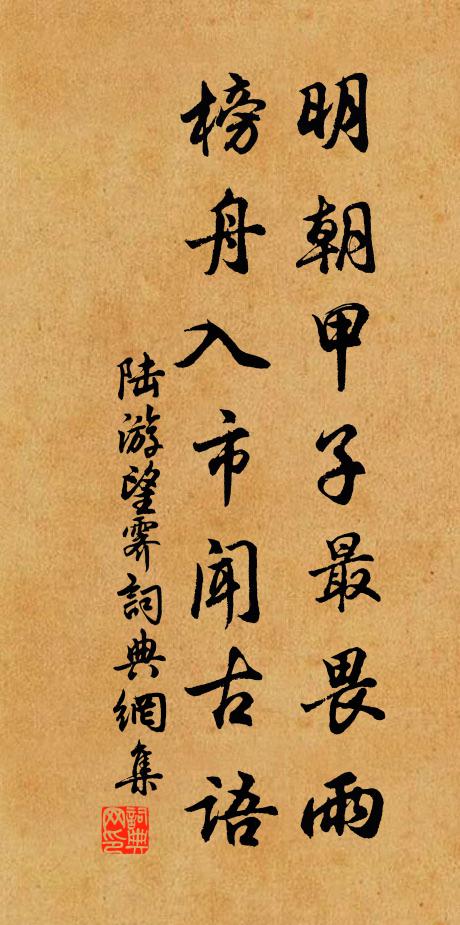 明朝甲子最畏雨
榜舟入市闻古語
陆游望霽詞典網集
詞典网印